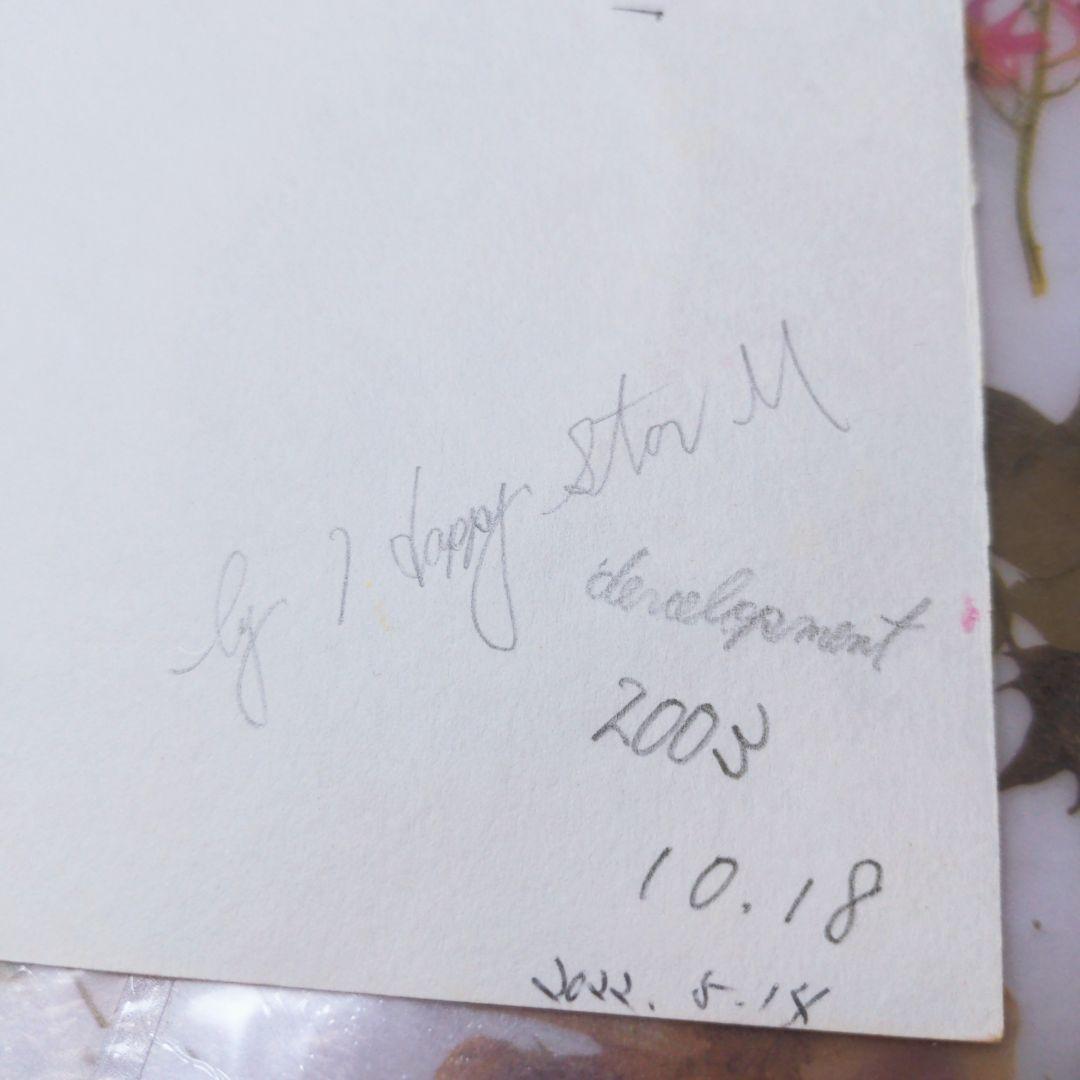 by 7. Happy Star M
development
2003
10.18
2022. 5.18